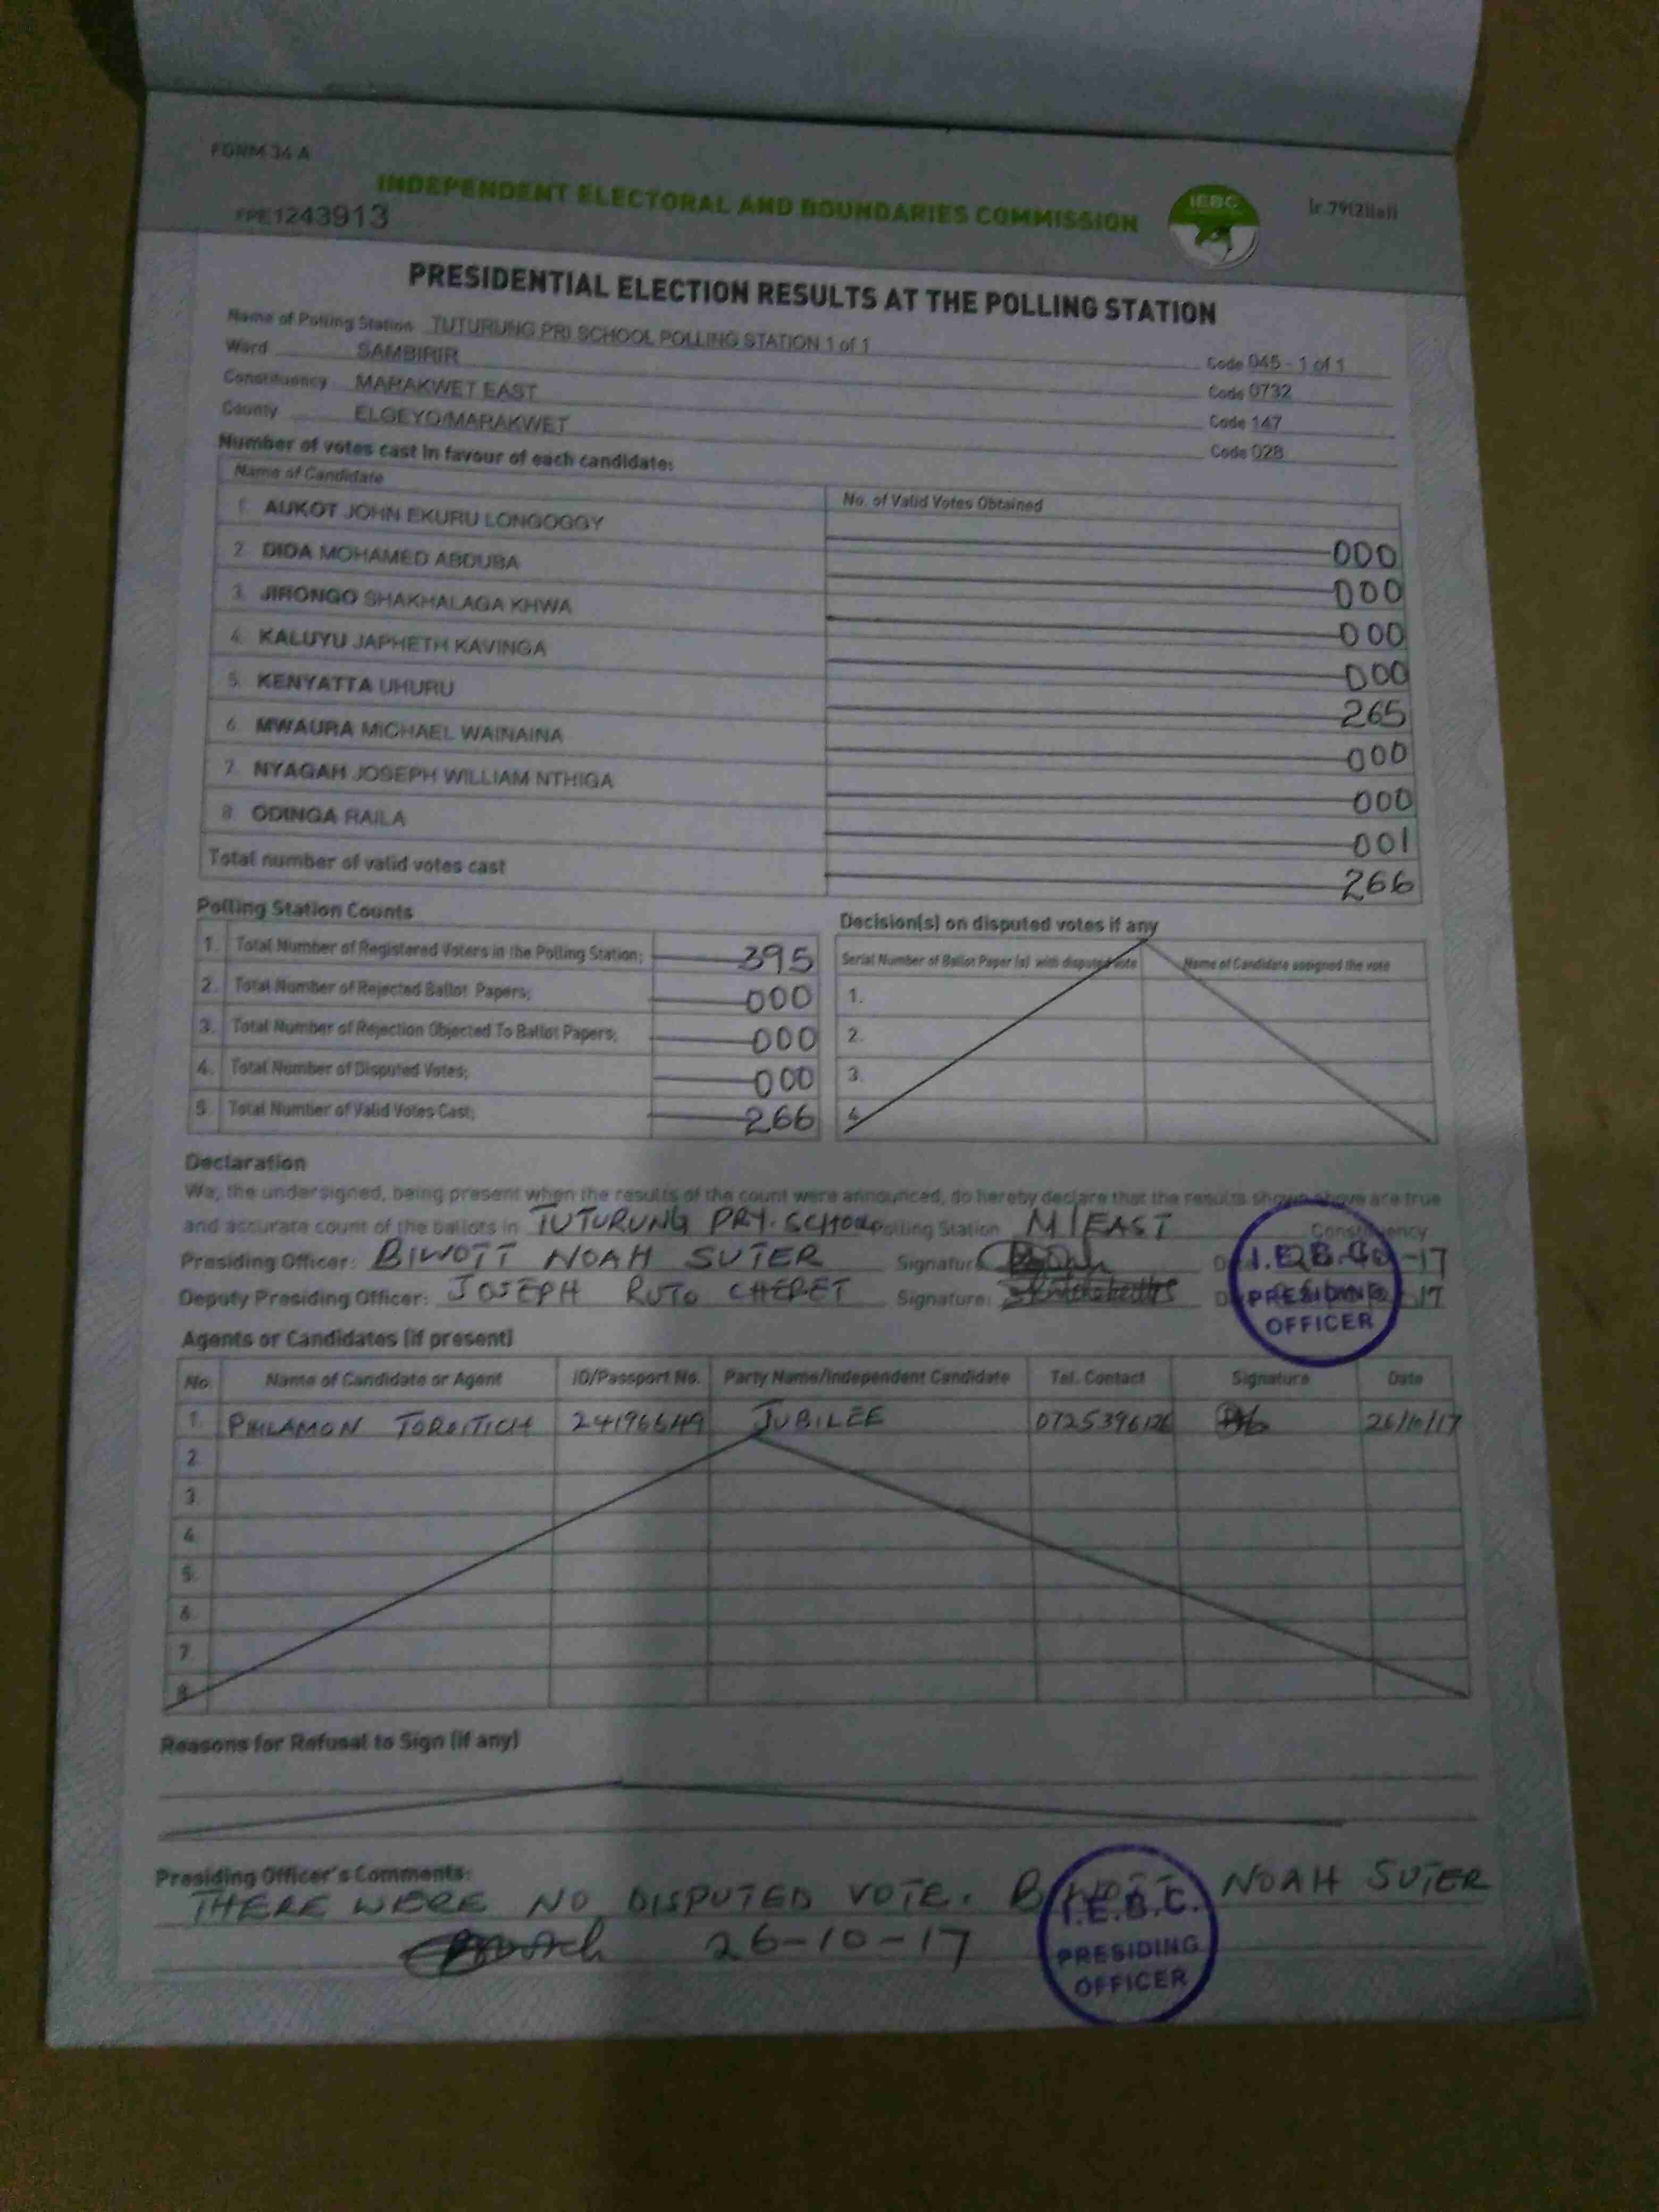 FORM 34 A
INDEPENDENT ELECTORAL AND BOUNDARIES COMMISSION
IEBC
1243913
PRESIDENTIAL ELECTION RESULTS AT THE POLLING STATION
Name of Polling Station TUTURUNG PRI SCHOOL POLLING STATION 1 of 1 Code 045 - 1 of 1
Ward SAMBIRIR Code 0732
Constituency MARAKWET EAST Code 147
County ELGEYO/MARAKWET Code 028
Number of votes cast in favour of each candidate:
Name of Candidate No. of Valid Votes Obtained
1. AUKOT JOHN EKURU LONGOGGY 000
2. DIDA MOHAMED ABDUBA 000
3. JIRONGO SHAKHALAGA KHWA 000
4. KALUYU JAPHETH KAVINGA 000
5. KENYATTA UHURU 265
6. MWAURA MICHAEL WAINAINA 000
7. NYAGAH JOSEPH WILLIAM NTHIGA 000
8. ODINGA RAILA 001
Total number of valid votes cast 266
Polling Station Counts
1. Total Number of Registered Voters in the Polling Station; 395
2. Total Number of Rejected Ballot Papers; 000
3. Total Number of Rejection Objected To Ballot Papers; 000
4. Total Number of Disputed Votes; 000
5. Total Number of Valid Votes Cast; 266
Decision(s) on disputed votes if any
Serial Number of Ballot Paper (s) with disputed vote Name of Candidate assigned the vote
1.
2.
3.
4.
Declaration
We, the undersigned, being present when the results of the count were announced, do hereby declare that the results shown above are true
and accurate count of the ballots in TUTURUNG PRY. SCHOOL Polling Station M/EAST Constituency
Presiding Officer: BIWOTT NOAH SUTER Signature
Deputy Presiding Officer: JOSEPH RUTO CHEPET Signature:
I.E.B.C.
PRESIDING
OFFICER
Agents or Candidates (if present)
No. Name of Candidate or Agent ID/Passport No. Party Name/Independent Candidate Tel. Contact Signature Date
1. PHILAMON TOROITICH 24196649 JUBILEE 0725396126 26/10/17
2.
3.
4.
5.
6.
7.
8.
Reasons for Refusal to Sign (if any)
Presiding Officer's Comments:
THERE WERE NO DISPUTED VOTE. BIWOTT NOAH SUTER
26-10-17
I.E.B.C.
PRESIDING
OFFICER